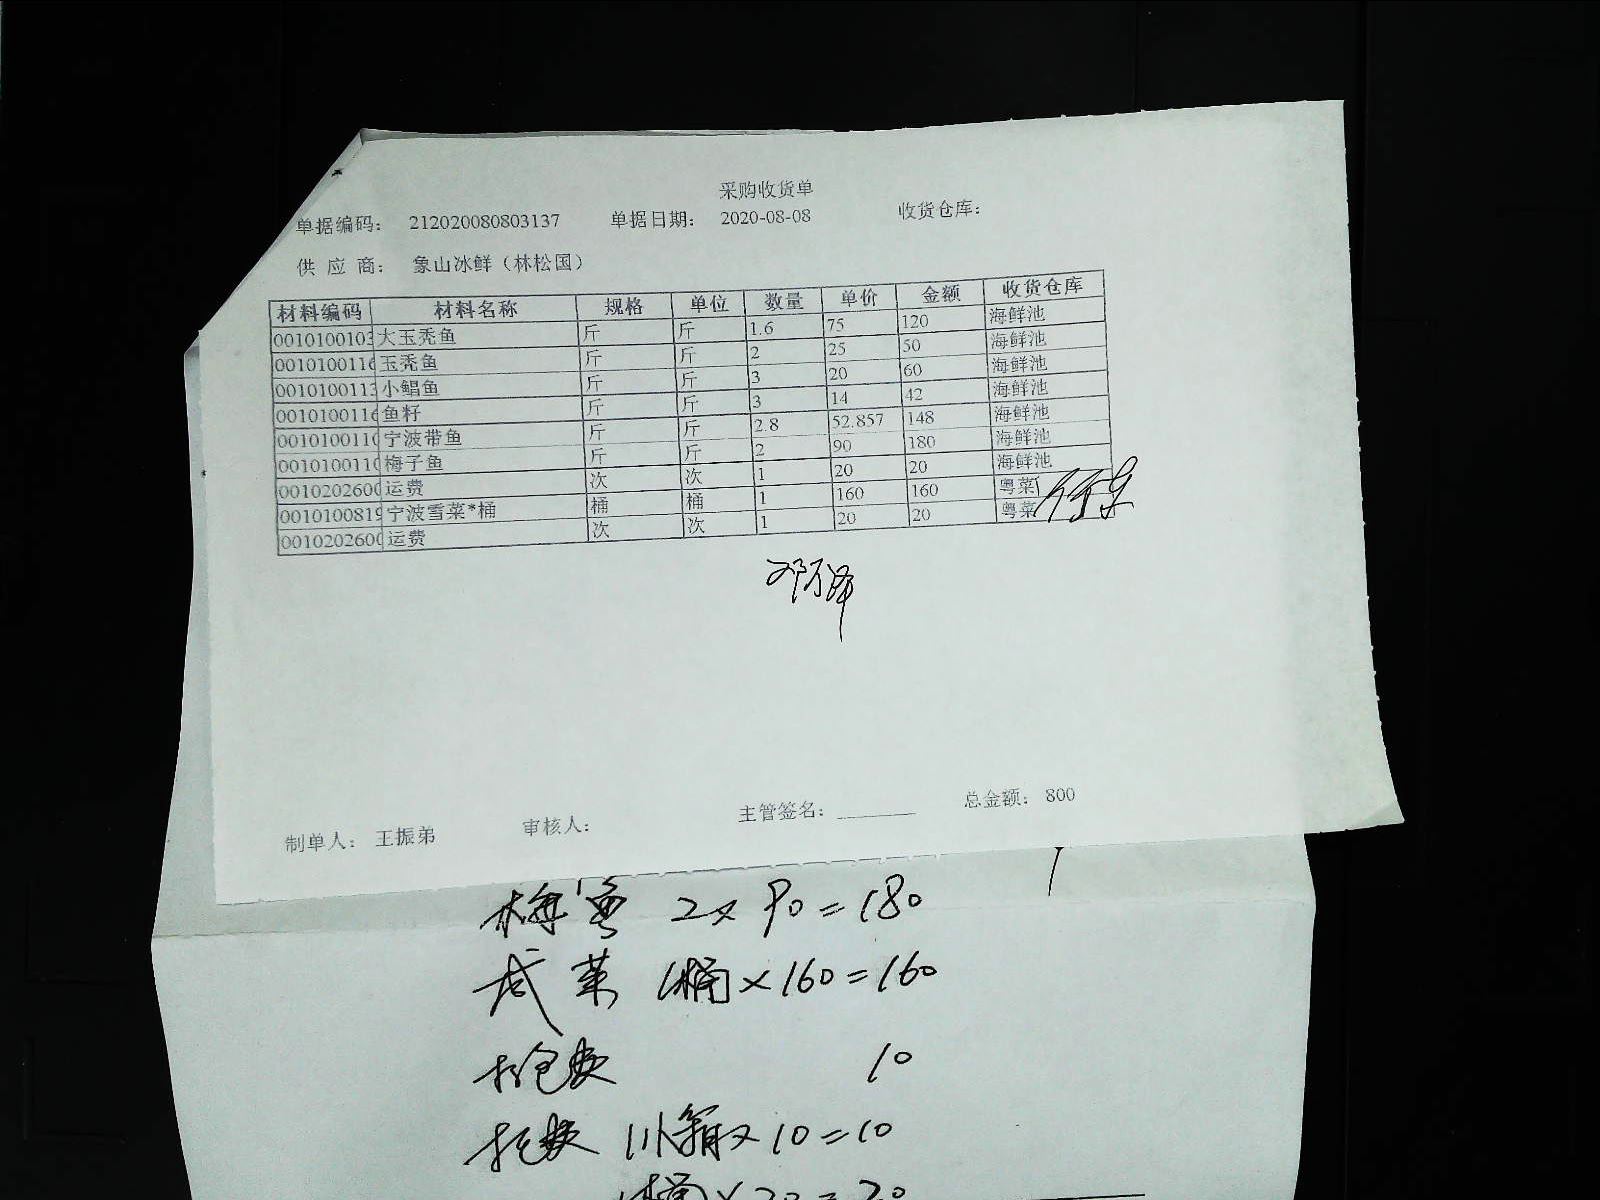 采购收货单
单据编码： 212020080803137 单据日期： 2020-08-08 收货仓库：
供 应 商： 象山冰鲜（林松国）
材料编码 材料名称 规格 单位 数量 单价 金额 收货仓库
0010100103 大玉秃鱼 斤 斤 1.6 75 120 海鲜池
001010011 玉秃鱼 斤 斤 2 25 50 海鲜池
001010011 小鲳鱼 斤 斤 3 20 60 海鲜池
001010011 鱼籽 斤 斤 3 14 42 海鲜池
001010011 宁波带鱼 斤 斤 2.8 52.857 148 海鲜池
001010011 梅子鱼 斤 斤 2 90 180 海鲜池
001020260 运费 次 次 1 20 20 海鲜池
001010081 宁波雪菜*桶 桶 桶 1 160 160 粤菜
001020260 运费 次 次 1 20 20 粤菜
邓万泽
制单人： 王振弟 审核人： 主管签名： 总金额： 800
梅鱼 2x90=180
咸菜 1桶×160=160
打包费 10
托费 1小箱x10=10
1桶×20=20